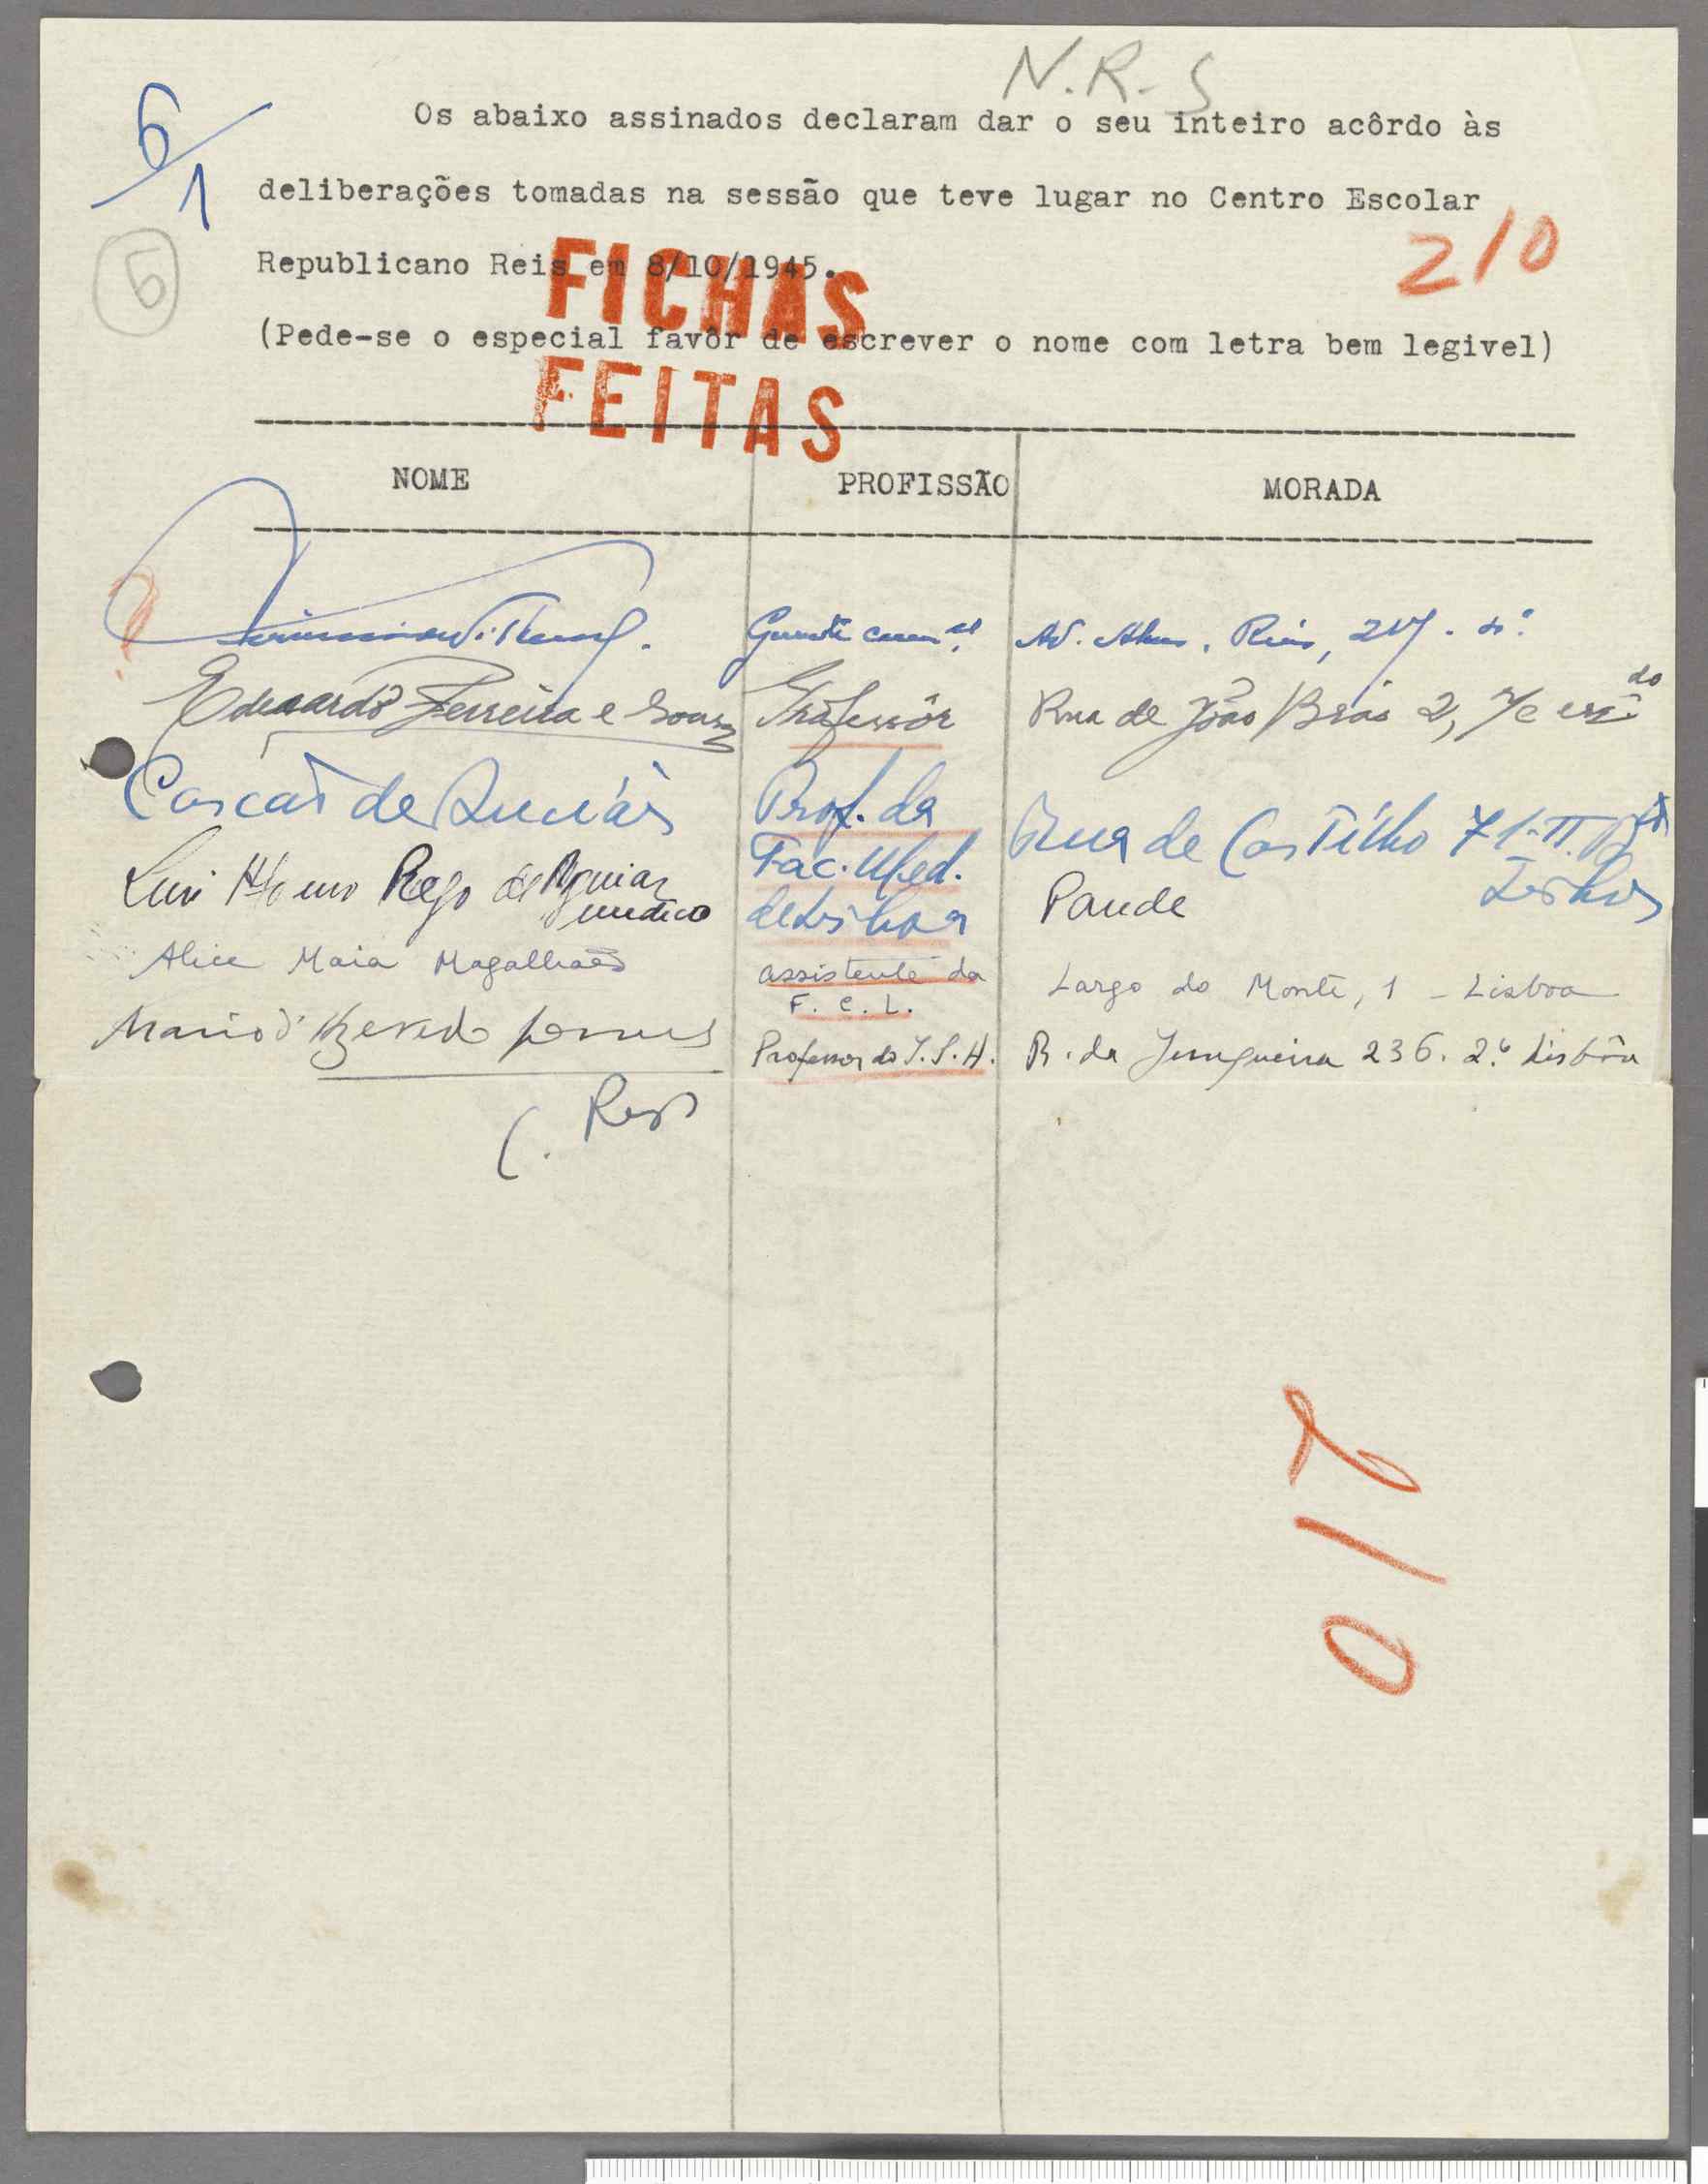 N.R.S
6/1
Os abaixo assinados declaram dar o seu inteiro acôrdo às
deliberações tomadas na sessão que teve lugar no Centro Escolar
210
Republicano Reis em 8/10/1945.
5
FICHAS
(Pede-se o especial favôr de escrever o nome com letra bem legivel)
FEITAS
NOME PROFISSÃO MORADA
? Av. Reis,
Eduardo Ferreira e Sousa Professôr Rua de João Brás 2,
Cascão de Anciães Prof. da Rua de Castilho 71-II.
Fac. Med. Lisboa
Rego de Aguiar
medico de Lisboa
Alice Maia Magalhães assistente da Largo do Monte, 1 - Lisboa
F. C. L.
Mario d'Azevedo Gomes Professor do I.S.A. R. da Junqueira 236. 2.º Lisbôa
210